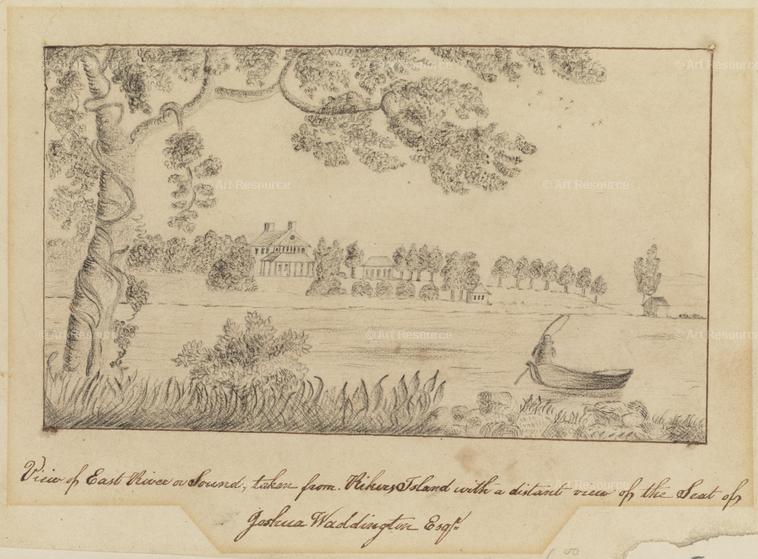 View of East River or Sound, taken from Rikers Island with a distant view of the Seat of
Joshua Waddington Esqr.
© Art Resource
© Art Resource
© Art Resource
© Art Resource
© Art Resource
© Art Resource
© Art Resource
© Art Resource
© Art Resource